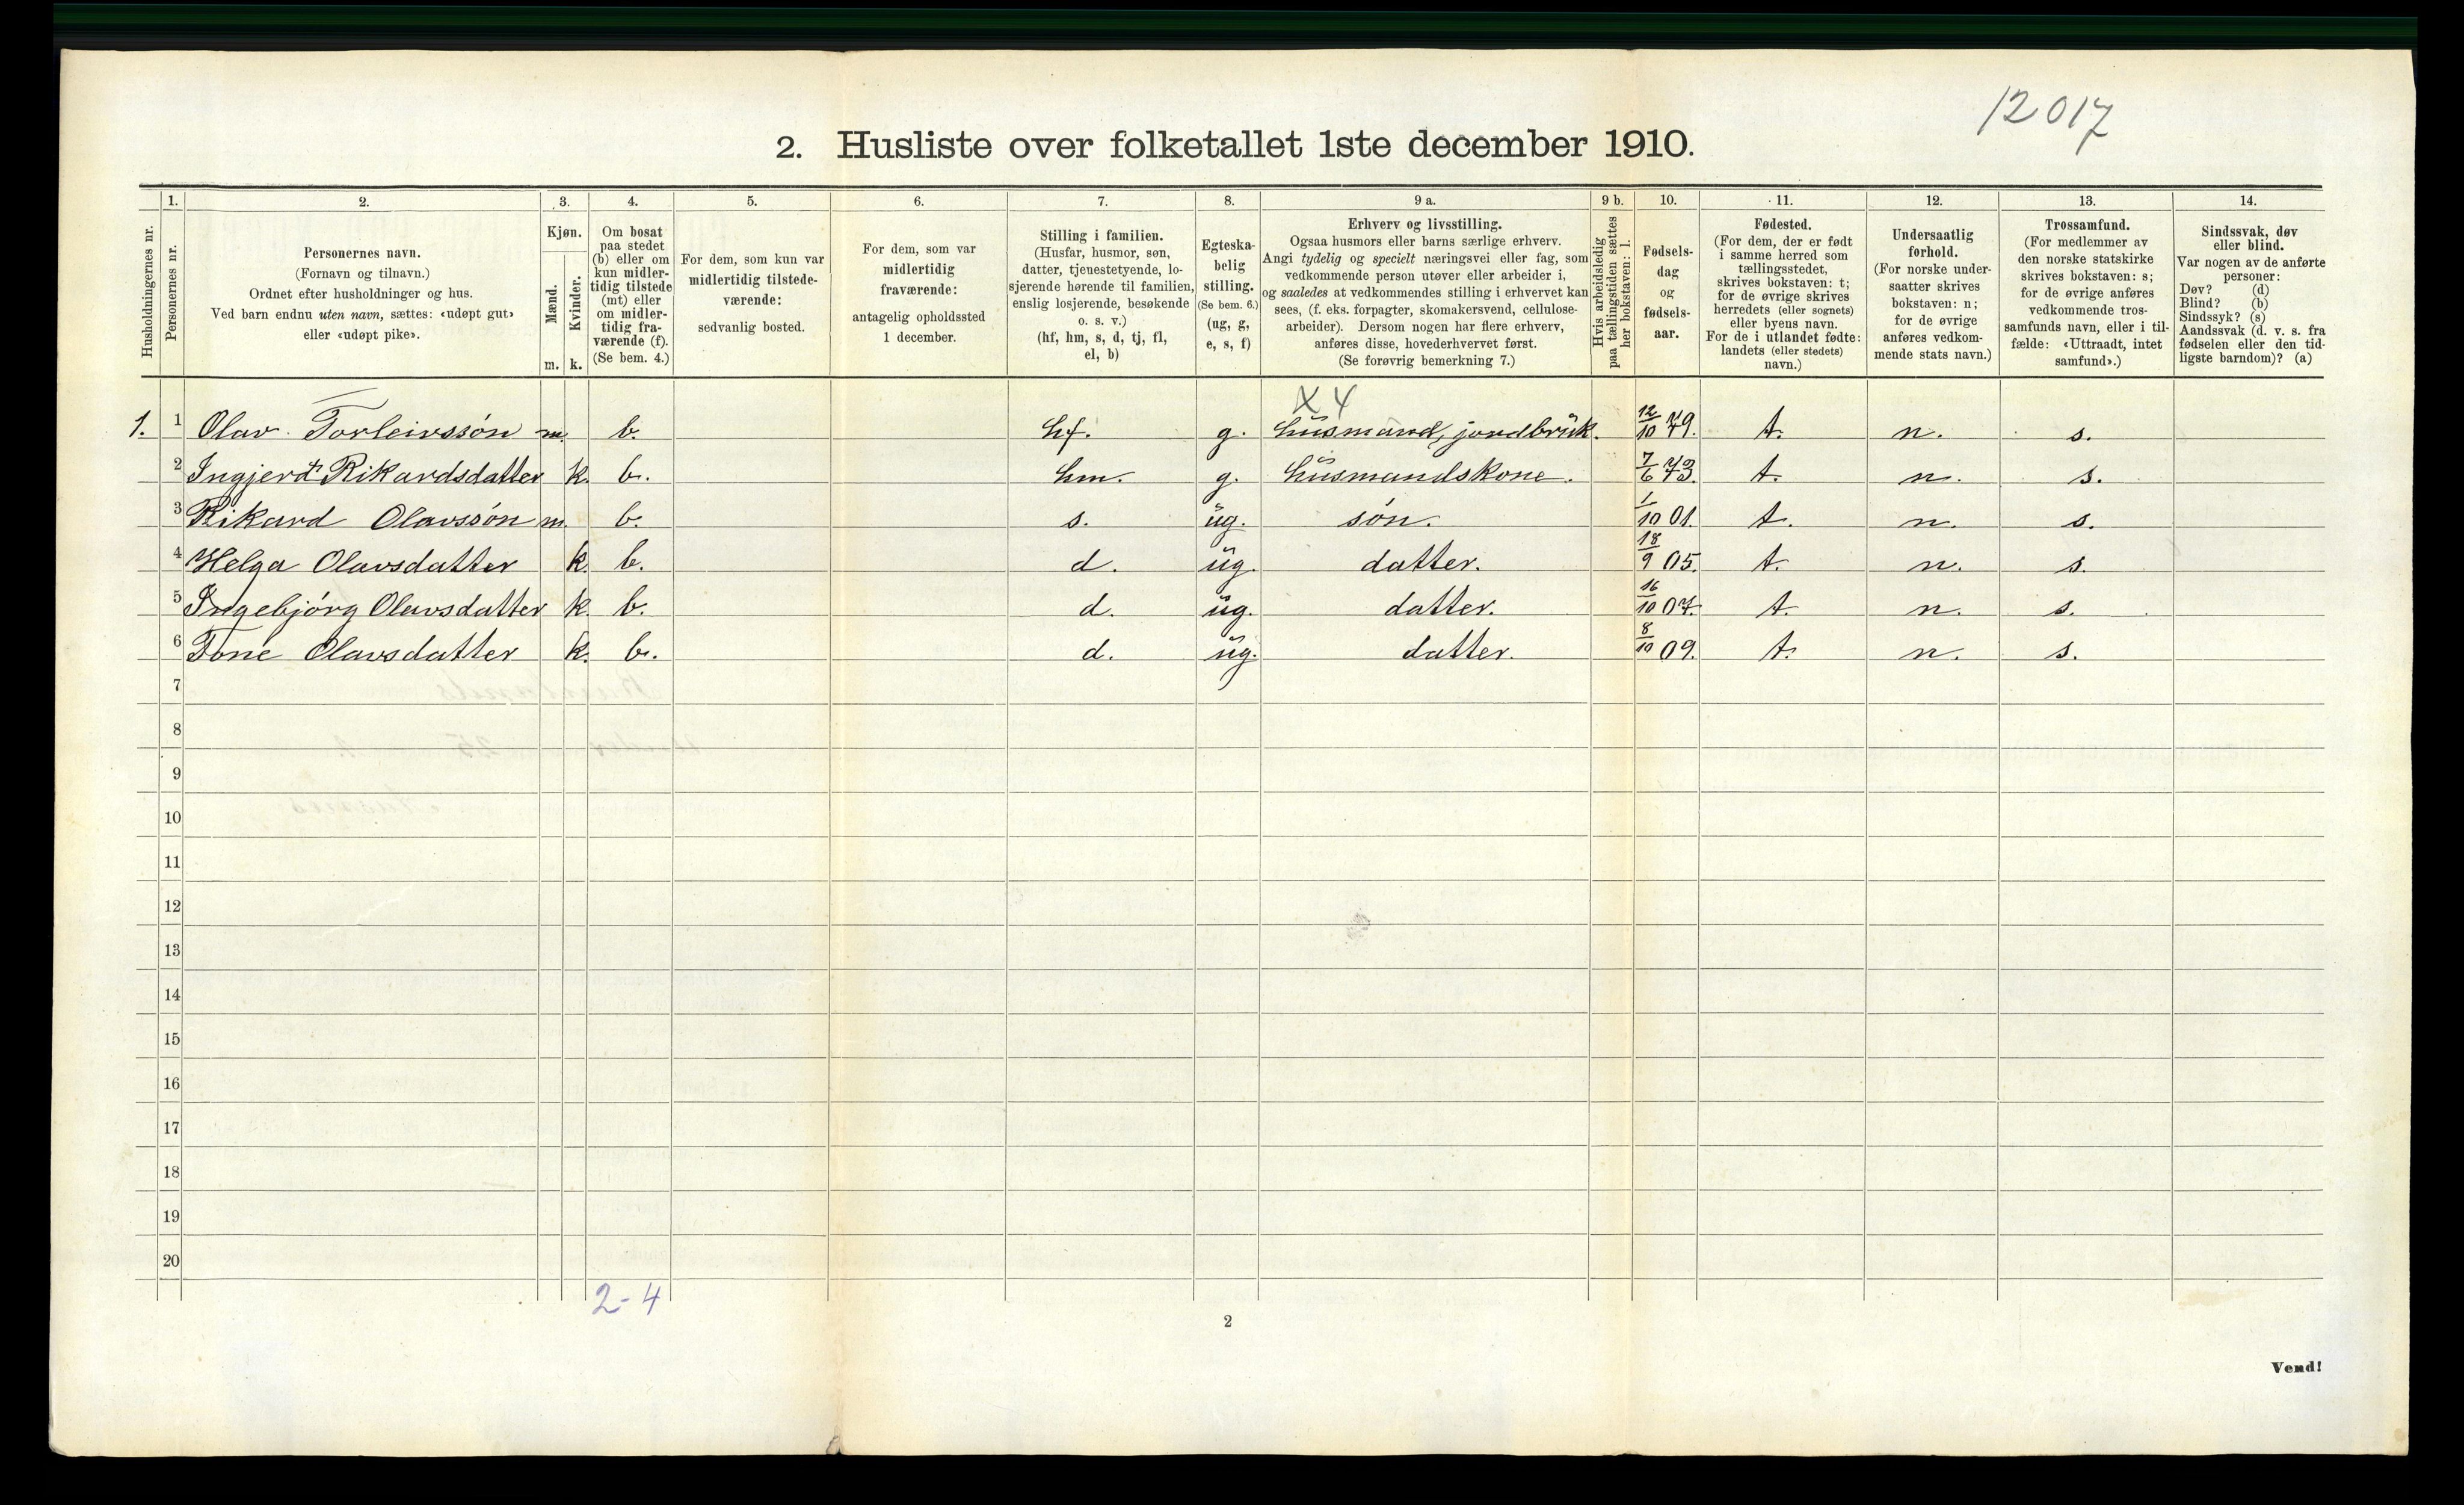 12017
2. Husliste over folketallet 1ste december 1910.
Husholdningernes nr.
1.
Personernes nr.
2.
Personernes navn.
(Fornavn og tilnavn.)
Ordnet efter husholdninger og hus.
Ved barn endnu uten navn, sættes: «udøpt gut»
eller «udøpt pike».
3.
Kjøn.
Mænd.
Kvinder.
m. k.
4.
Om bosat
paa stedet
(b) eller om
kun midler-
tidig tilstede
(mt) eller
om midler-
tidig fra-
værende (f).
(Se bem. 4.)
5.
For dem, som kun var
midlertidig tilstede-
værende:
sedvanlig bosted.
6.
For dem, som var
midlertidig
fraværende:
antagelig opholdssted
1 december.
7.
Stilling i familien.
(Husfar, husmor, søn,
datter, tjenestetyende, lo-
sjerende hørende til familien,
enslig losjerende, besøkende
o. s. v.)
(hf, hm, s, d, tj, fl,
el, b)
8.
Egteska-
belig
stilling.
(Se bem. 6.)
(ug, g,
e, s, f)
9 a.
Erhverv og livsstilling.
Ogsaa husmors eller barns særlige erhverv.
Angi tydelig og specielt næringsvei eller fag, som
vedkommende person utøver eller arbeider i,
og saaledes at vedkommendes stilling i erhvervet kan
sees, (f. eks. forpagter, skomakersvend, cellulose-
arbeider). Dersom nogen har flere erhverv,
anføres disse, hovederhvervet først.
(Se forøvrig bemerkning 7.)
9 b.
Hvis arbeidsledig
paa tællingstiden sættes
her bokstaven: l.
10.
Fødsels-
dag
og
fødsels-
aar.
11.
Fødested.
(For dem, der er født
i samme herred som
tællingsstedet,
skrives bokstaven: t;
for de øvrige skrives
herredets (eller sognets)
eller byens navn.
For de i utlandet fødte:
landets (eller stedets)
navn.)
12.
Undersaatlig
forhold.
(For norske under-
saatter skrives
bokstaven: n;
for de øvrige
anføres vedkom-
mende stats navn.)
13.
Trossamfund.
(For medlemmer av
den norske statskirke
skrives bokstaven: s;
for de øvrige anføres
vedkommende tros-
samfunds navn, eller i til-
fælde: «Uttraadt, intet
samfund».)
14.
Sindssvak, døv
eller blind.
Var nogen av de anførte
personer:
Døv? (d)
Blind? (b)
Sindssyk? (s)
Aandssvak (d. v. s. fra
fødselen eller den tid-
ligste barndom)? (a)
X 4
1. 1 Olav Torleivssøn m. b. hf. g. husmand, jordbruk. 12/10 79. t. n. s.
2 Ingjerd Rikardsdatter k. b. hm. g. husmandskone. 7/6 73. t. n. s.
3 Rikard Olavssøn m. b. s. ug. søn. 1/10 01. t. n. s.
4 Helga Olavsdatter k. b. d. ug. datter. 18/9 05. t. n. s.
5 Ingebjørg Olavsdatter k. b. d. ug. datter. 16/10 07. t. n. s.
6 Tone Olavsdatter k. b. d. ug. datter. 8/10 09. t. n. s.
7
8
9
10
11
12
13
14
15
16
17
18
19
20
2-4
2
Vend!